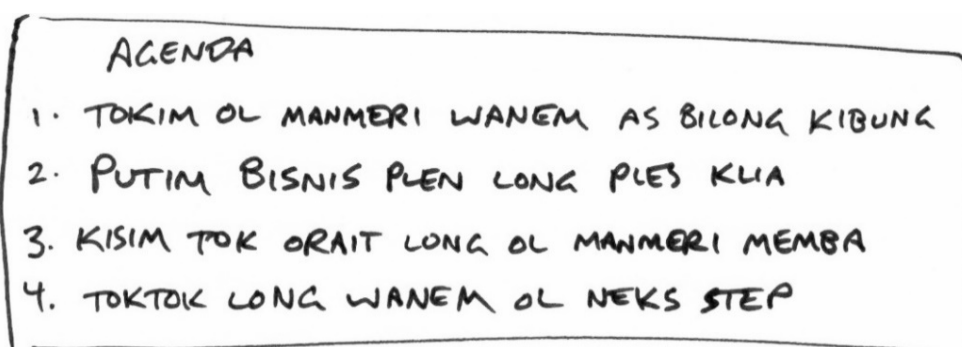 AGENDA
1. TOKIM OL MANMERI WANEM AS BILONG KIBUNG
2. PUTIM BISNIS PLEN LONG PLES KLIA
3. KISIM TOK ORAIT LONG OL MANMERI MEMBA
4. TOKTOK LONG WANEM OL NEKS STEP